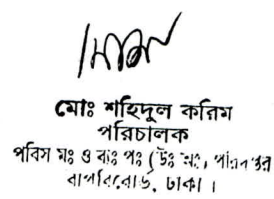 মোঃ শহিদুল করিম
পরিচালক
পবিস মঃ ও ব্যঃ পঃ (উঃ অঃ), পরিদপ্তর
বাপবিবোর্ড, ঢাকা ।